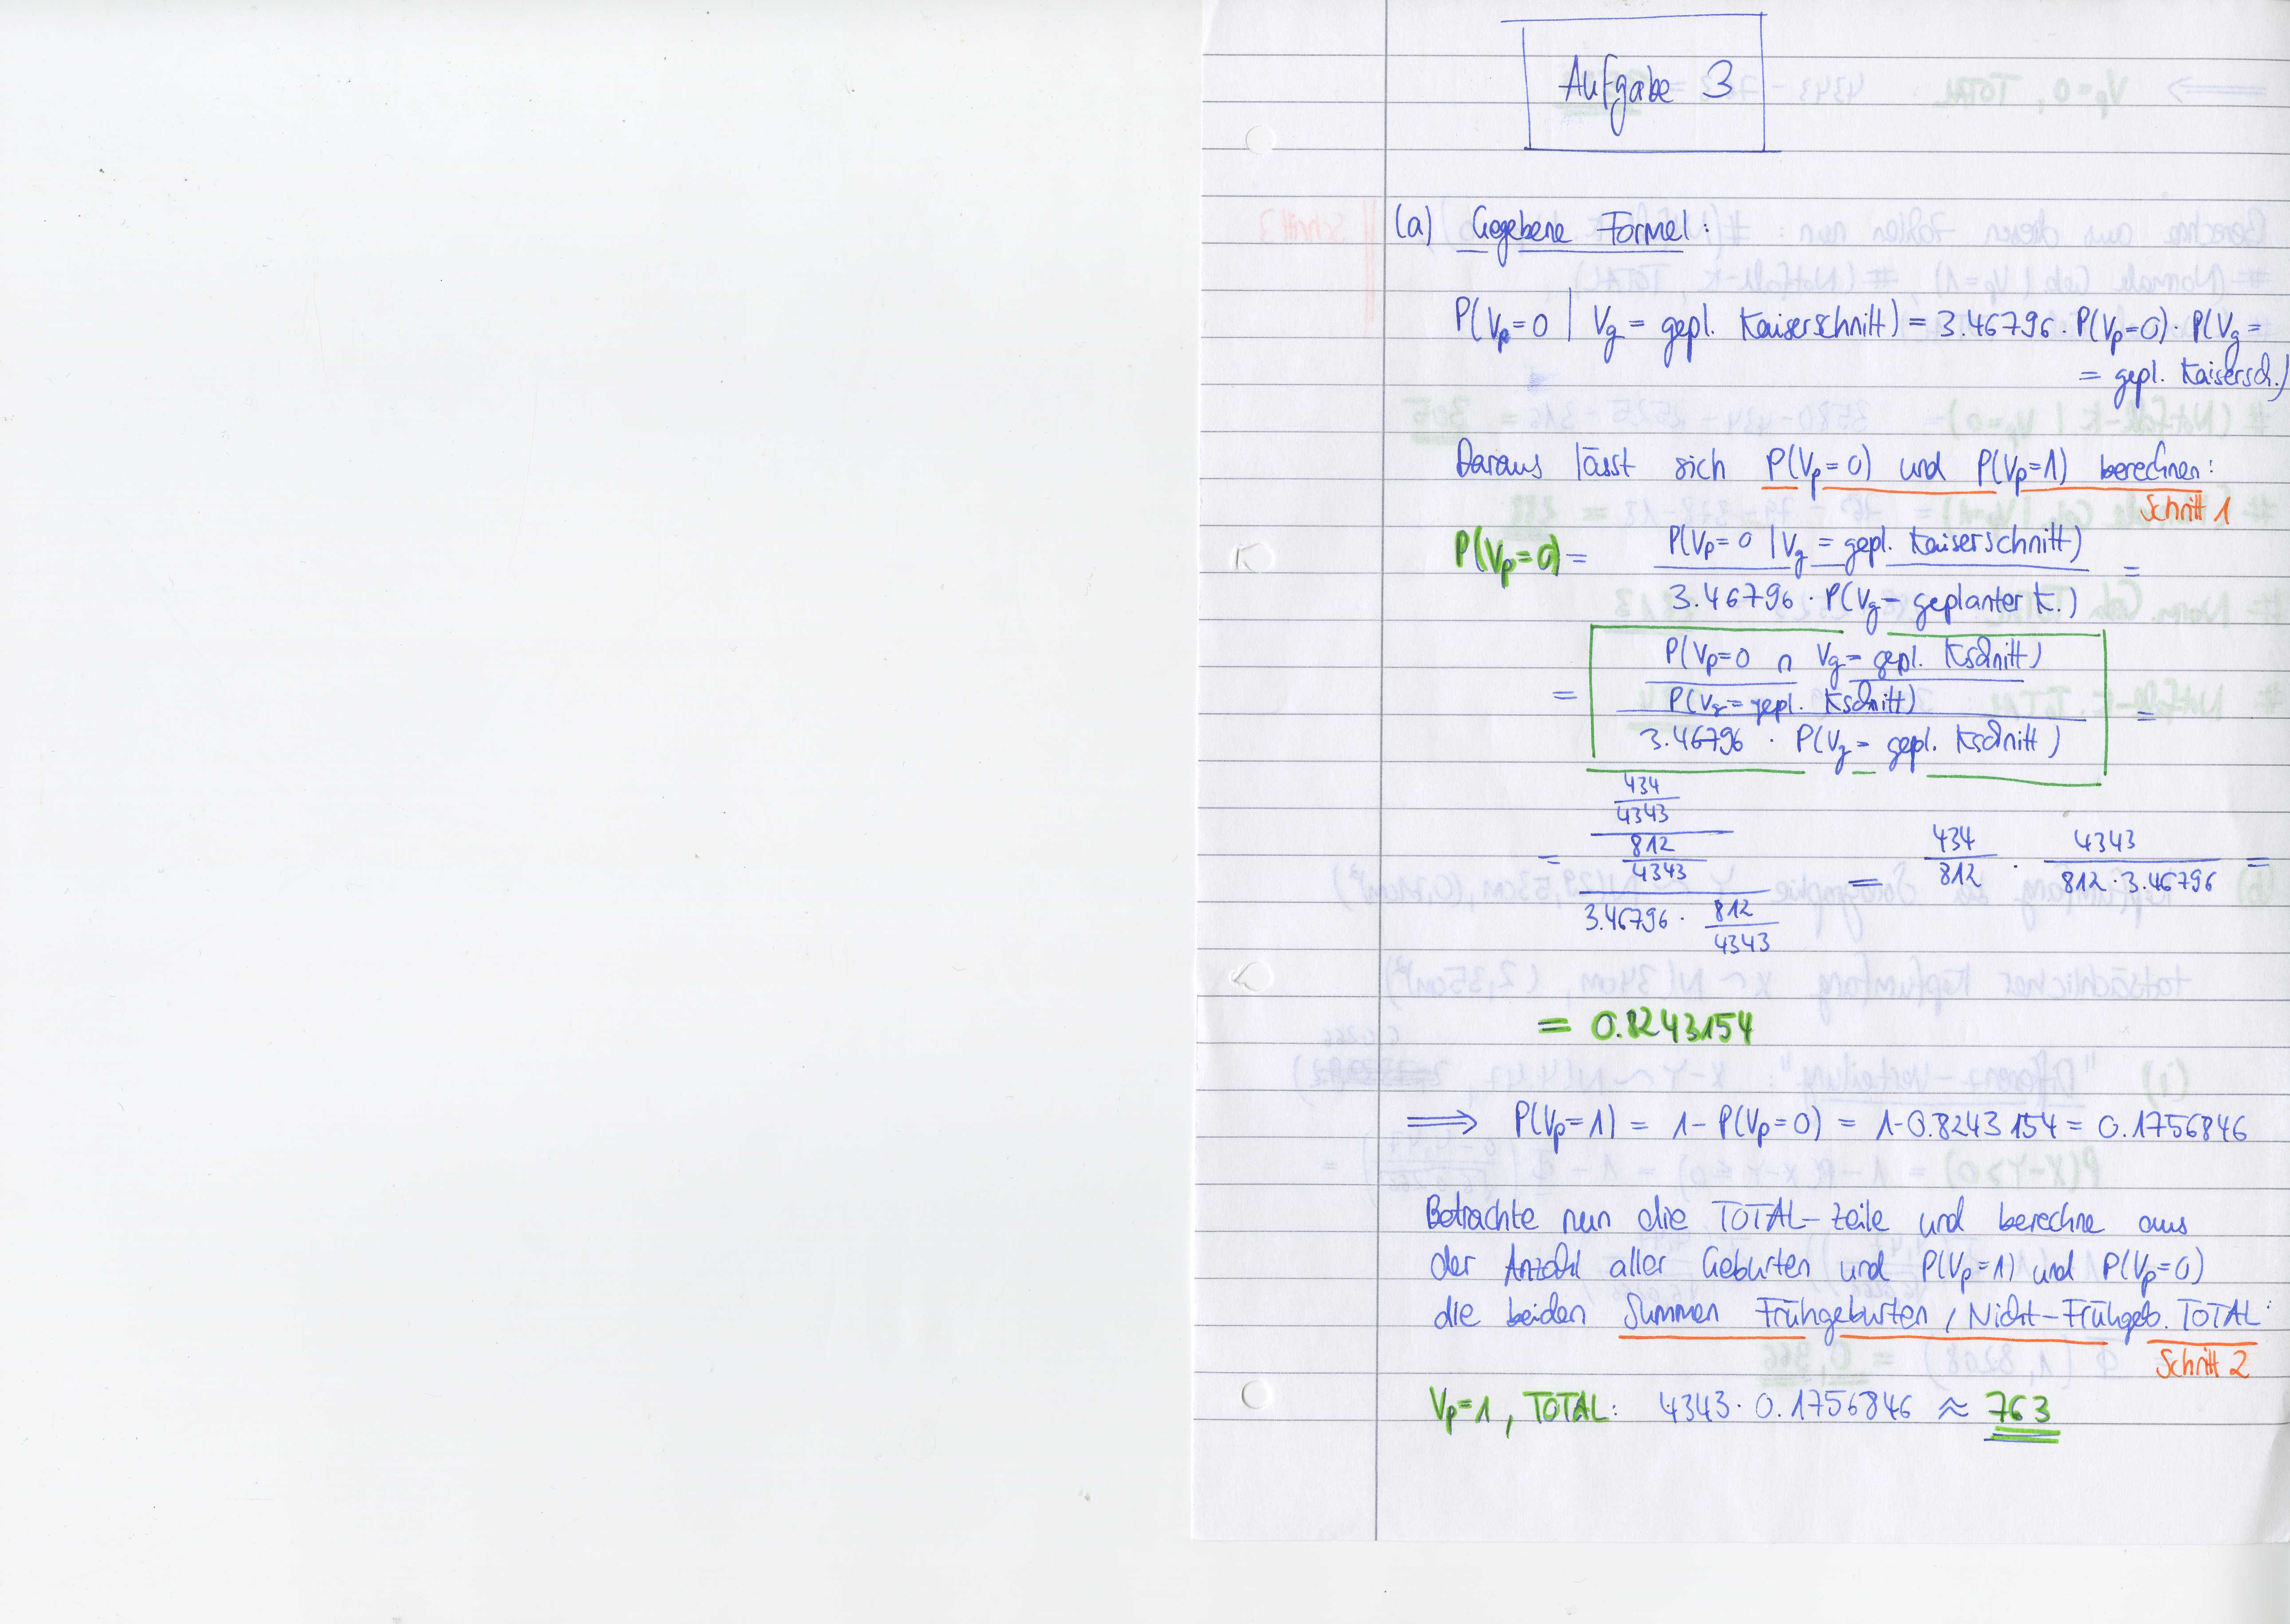 Aufgabe 3
(a) Gegebene Formel:
P(Vp=0 | Vg = gepl. Kaiserschnitt) = 3.46796 · P(Vp=0) · P(Vg =
= gepl. Kaisersch.)
Daraus lässt sich P(Vp=0) und P(Vp=1) berechnen:
Schritt 1
P(Vp=0) = P(Vp=0 | Vg = gepl. Kaiserschnitt) =
3.46796 · P(Vg = geplanter K.)
P(Vp=0 ∩ Vg = gepl. Kschnitt)
= P(Vg = gepl. Kschnitt) =
3.46796 · P(Vg = gepl. Kschnitt)
434
4343
= 812 = 434 · 4343 =
4343 812 812 · 3.46796
3.46796 · 812
4343
= 0.8243154
⟹ P(Vp=1) = 1 - P(Vp=0) = 1-0.8243154 = 0.1756846
Betrachte nun die TOTAL-Zeile und berechne aus
der Anzahl aller Geburten und P(Vp=1) und P(Vp=0)
die beiden Summen Frühgeburten / Nicht-Frühgeb. TOTAL:
Schritt 2
Vp=1, TOTAL: 4343 · 0.1756846 ≈ 763